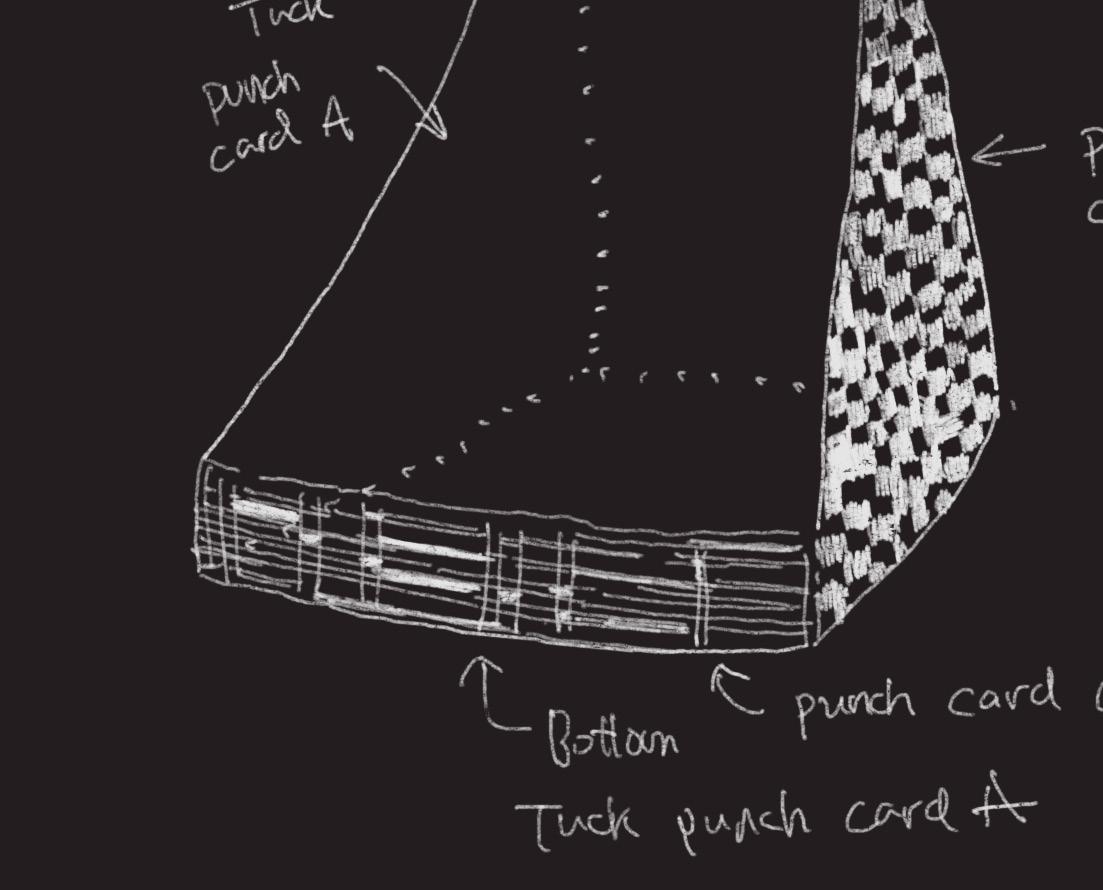 Tuck
punch
card A
punch card
Bottom
Tuck punch card A